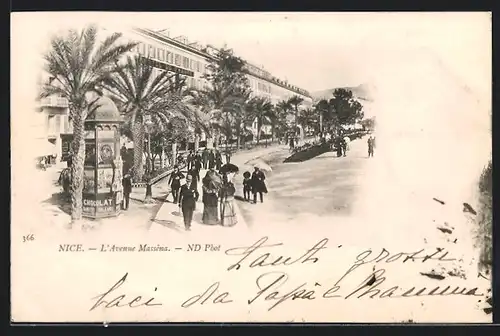 CHOCOLAT
366
NICE. — L'Avenue Masséna. — ND Phot
Tanti grossi
baci da Papà e Mamma